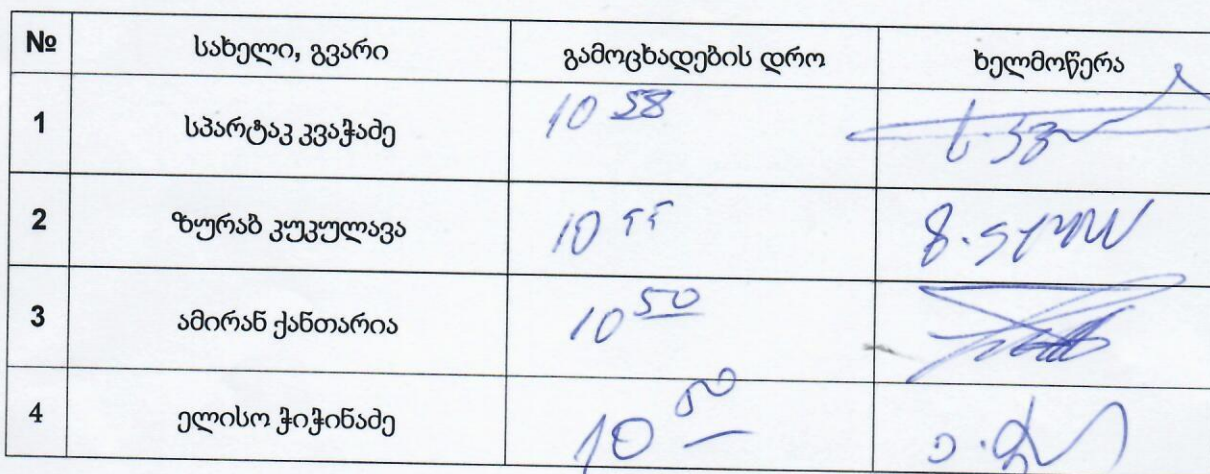 № სახელი, გვარი გამოცხადების დრო ხელმოწერა
1 სპარტაკ კვაჭაძე 10 58
2 ზურაბ კუკულავა 10 55
3 ამირან ქანთარია 10 50
4 ელისო ჭიჭინაძე 10